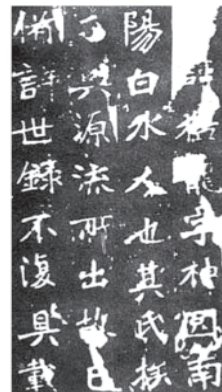 諱猛龍字神囧南
陽白水人也其氏族
興源流所出故已
備詳世錄不復具載